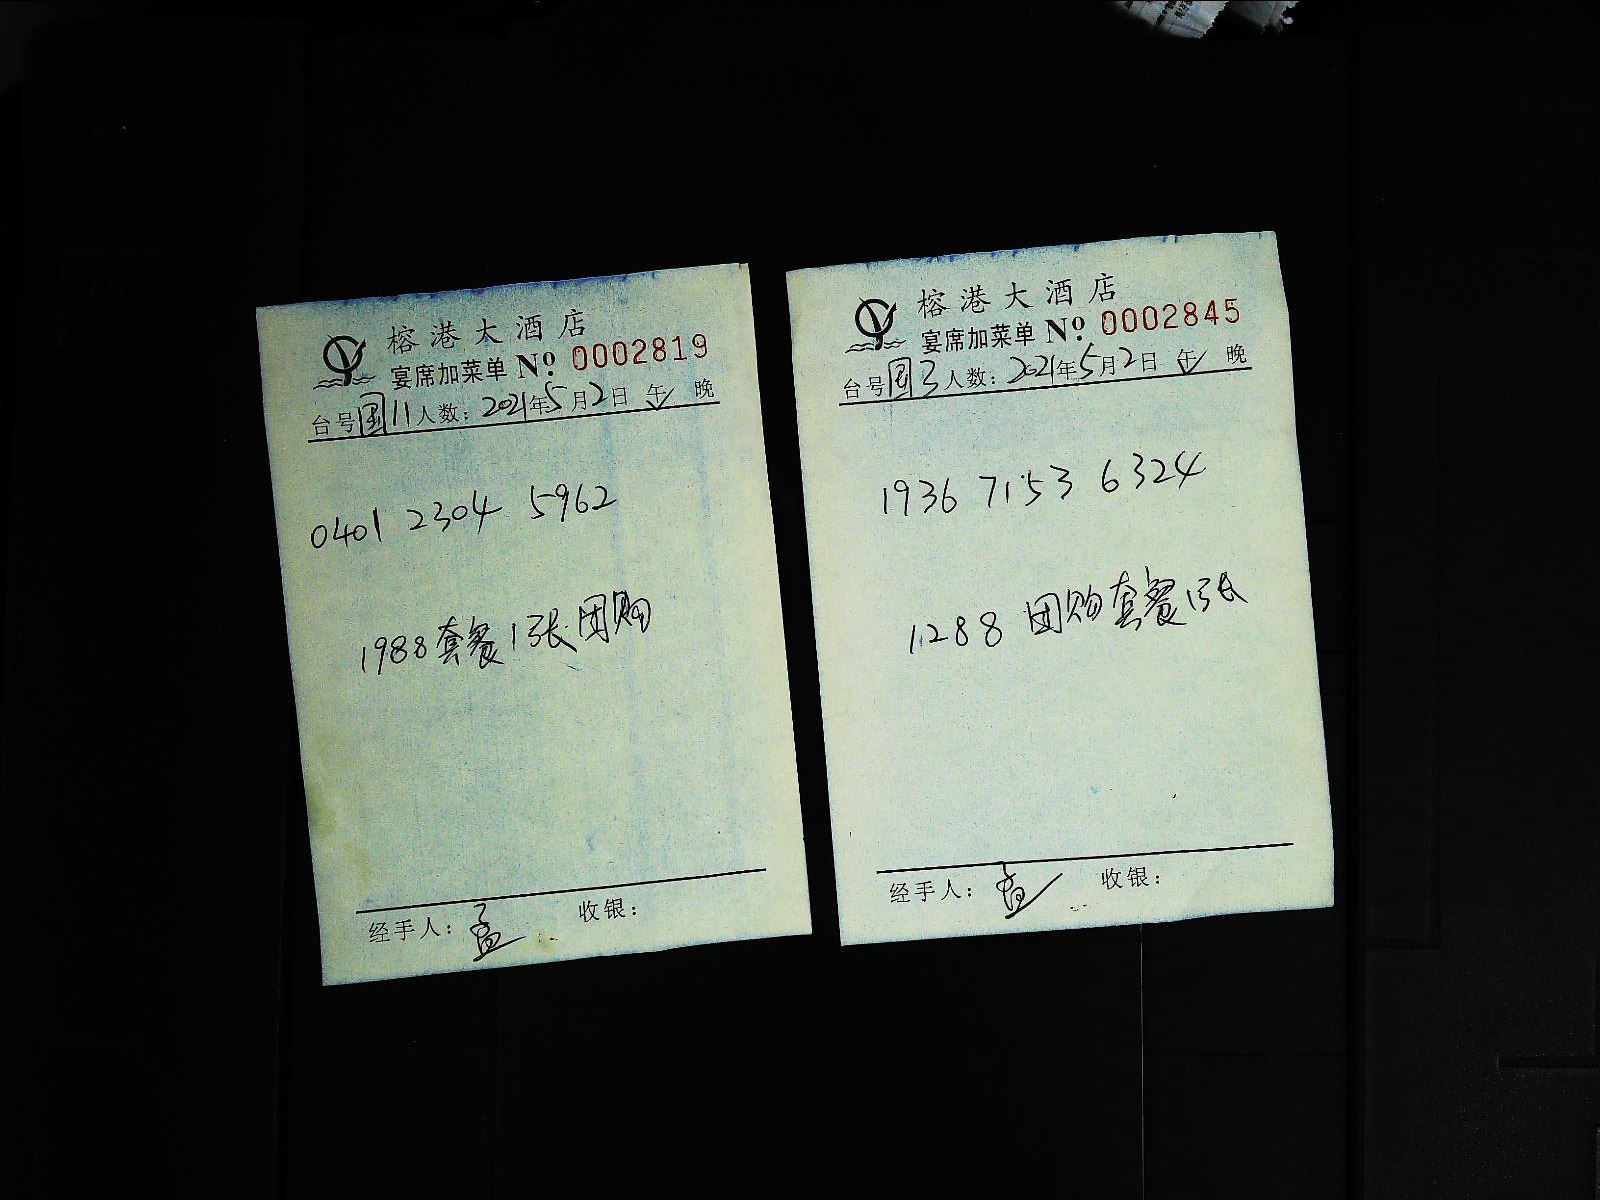 榕港大酒店
宴席加菜单 № 0002819
台号 国11 人数: 2021年5月2日 午✓ 晚
0401 2304 5962
1988套餐1张团购
经手人: 孟 收银:
榕港大酒店
宴席加菜单 № 0002845
台号 国3 人数: 2021年5月2日 午✓ 晚
1936 7153 6324
1288 团购套餐1张
经手人: 收银: